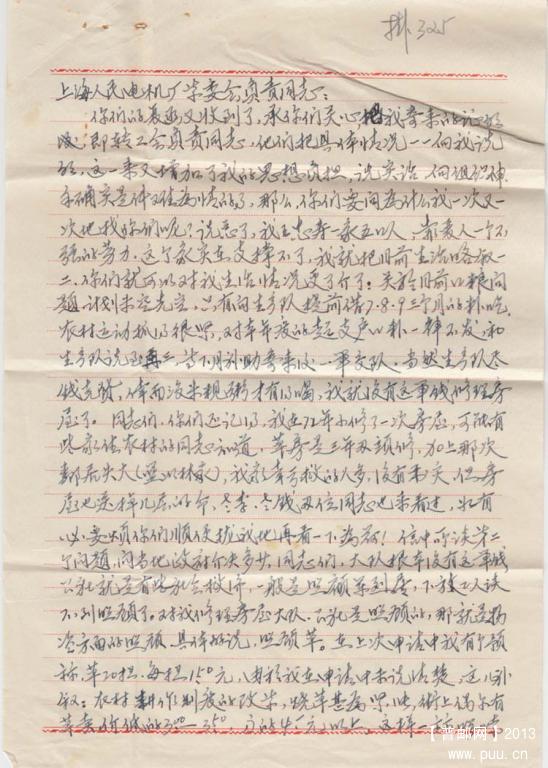 掛325
上海人民电机厂党委会负责同志：
你们的来函又收到了，承你们关心把我寄来的证明
即转工会负责同志，他们把具体情况一一向我说
明，这一来又增加了我的思想负担，说实话，向组织伸
手确实是件又难为情的事，那么，你们要问为什么我一次又一
次地找你们呢？说起了，我一家五口人，靠素人一个不
强的劳力，这个家实在支撑不了，我就把目前生活略叙一
二，你们就可以对我生活情况更了解了。关于目前口粮问
题，计划未空先空，只有向生产队提前借7.8.9三个月的补吃，
农村运动抓得很紧，对本年度的超支户口补一律不发，和
生产队说了再三，当下月补助寄来后一事交队，当然生产队是
钱克资，停而没米现粥才有得喝，我就没有这笔钱修理房
屋了。同志们，你们还记得，我在72年小修了一次房屋，可能有
些家住农村的同志知道，草房是三年两头修，加上那次
邻居失火，我家幸亏救的人多，没有来灾，但房
屋也是拆几层的命，冬李、冬钱两位同志也来看过，如有
必要烦你们顺便拢我地再看一下为荷！信中所谈第二
个问题，问当地政府介决多少，同志们，大队根本没有这笔钱
公社就是有些社会救济，一般是照顾军烈属，下放工人谈
不到照顾了，对我修理房屋大队、公社是照顾的，那就是物
资方面的照顾，具体的说，照顾草。在上次申请中我有个额
称，草20担，每担1.50元，由于我在申请中未说清楚，这儿补
叙：农村耕作制度的改革，烧草甚为紧张，街上偶尔有
草卖价钱的3.00—3.50 元以上，这样
【普邮网】2013
www.puu.cn